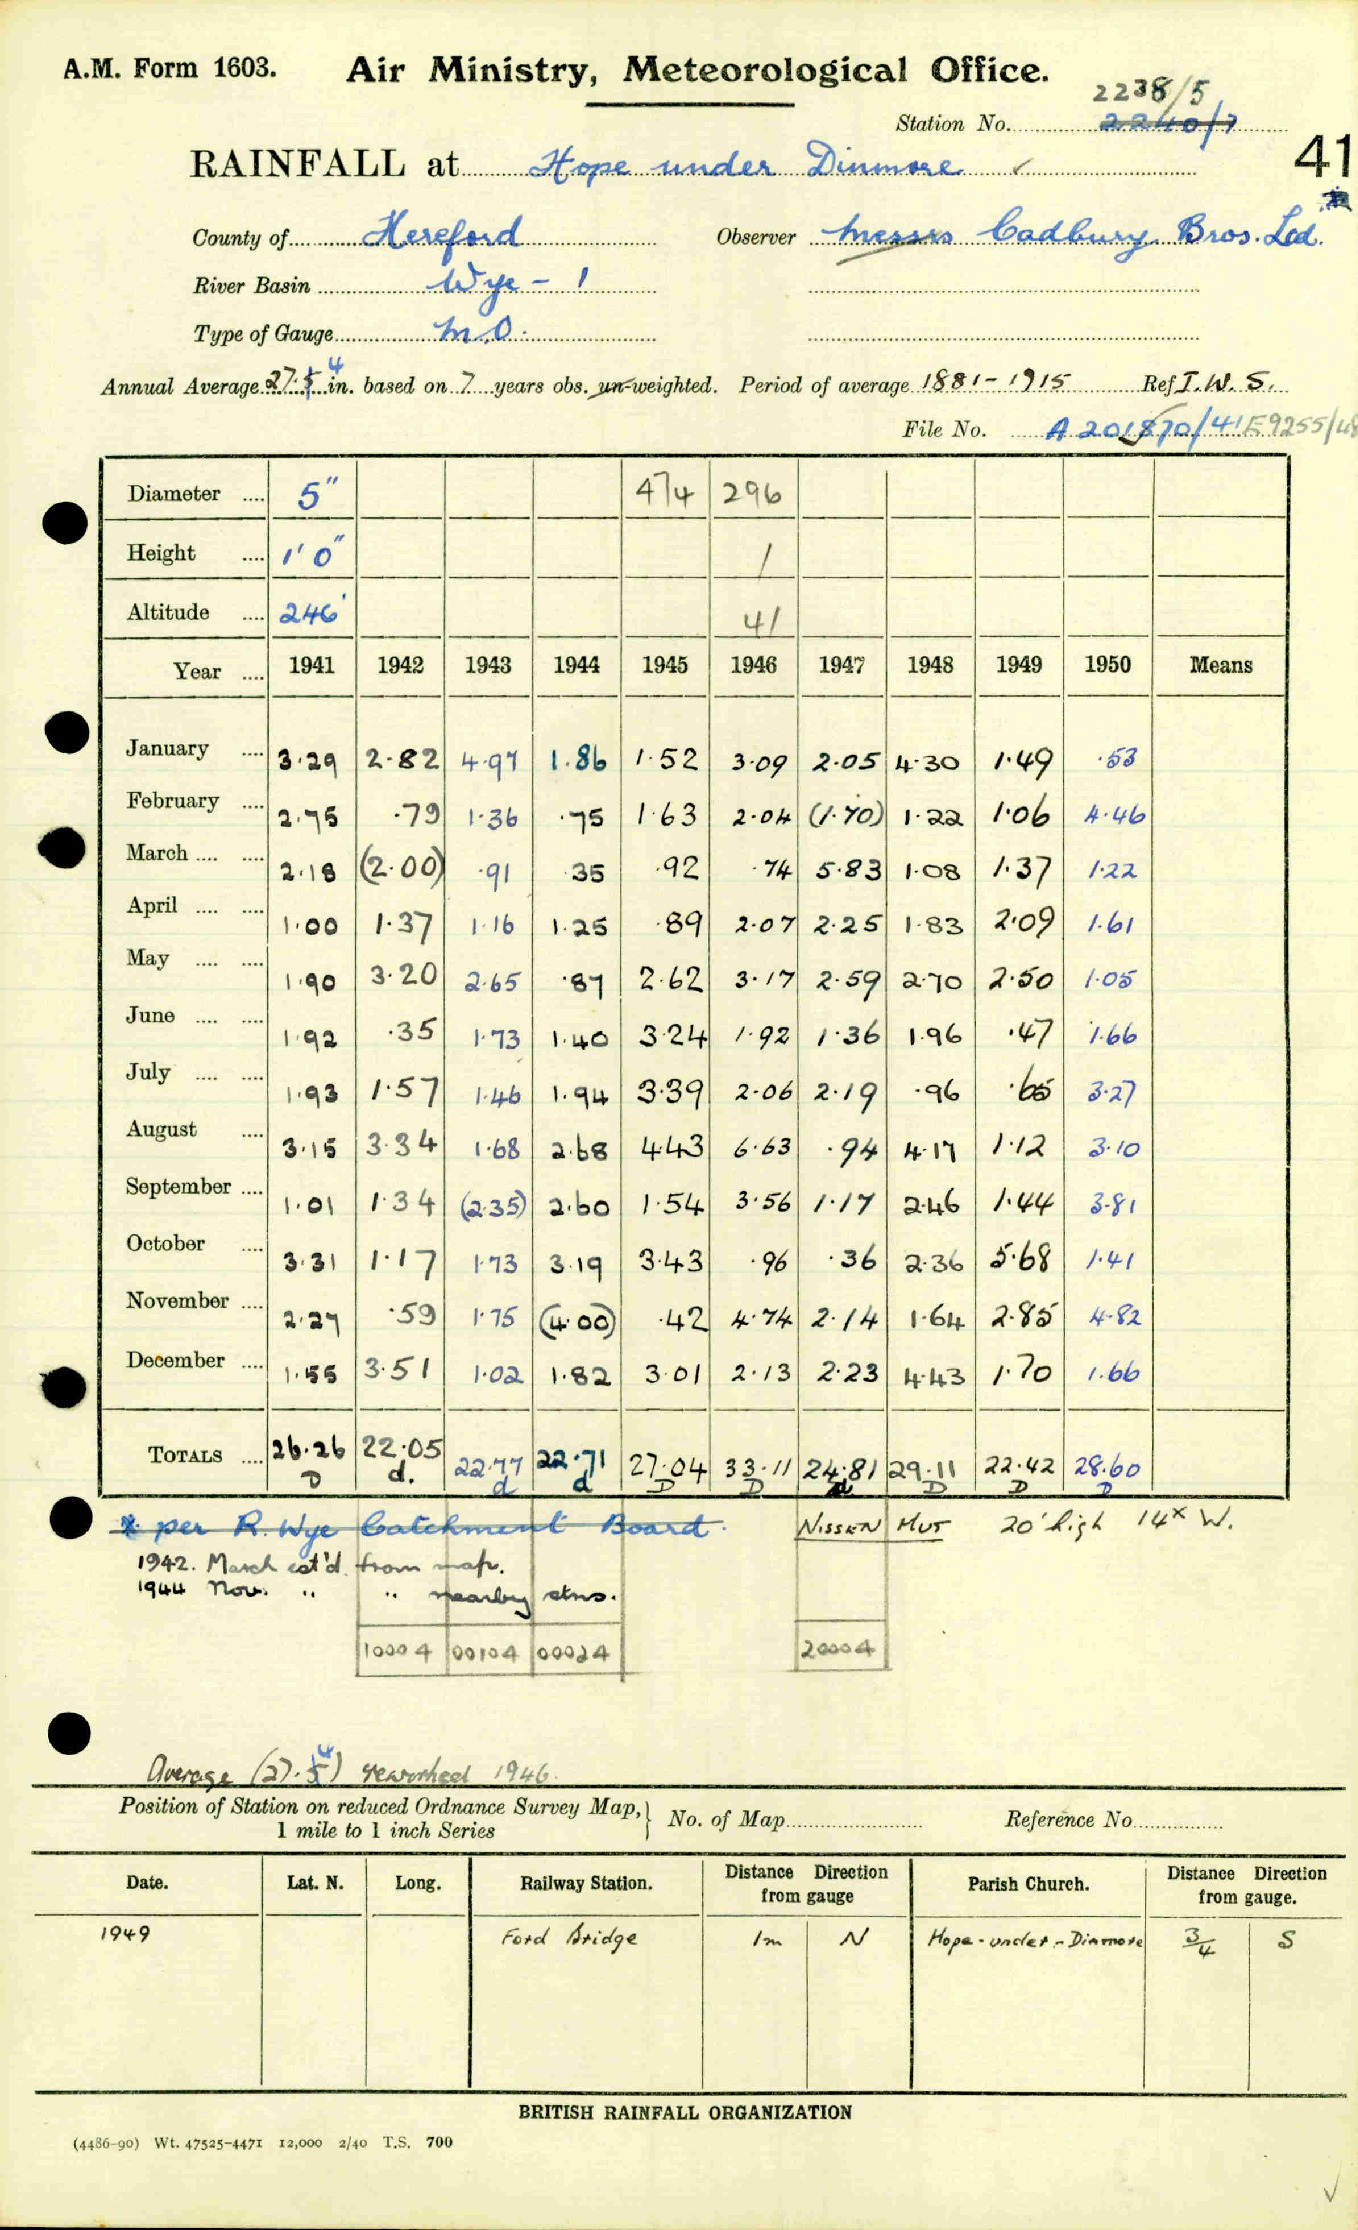 A.M. Form 1603. Air Ministry, Meteorological Office.
2238/5
Station No. 2240/7
RAINFALL at Hope under Dinmore ✓
41
County of Hereford Observer Messrs Cadbury Bros. Ltd.
River Basin Wye - 1
Type of Gauge M.O.
Annual Average 27.5 4 in. based on 7 years obs. un-weighted. Period of average 1881-1915 Ref I.W.S.
File No. A 201870/41 E9255/48
Diameter .... 5" 474 296
Height .... 1' 0" 1
Altitude .... 246' 41
Year .... 1941 1942 1943 1944 1945 1946 1947 1948 1949 1950 Means
January .... 3.29 2.82 4.97 1.86 1.52 3.09 2.05 4.30 1.49 .53
February .... 2.75 .79 1.36 .75 1.63 2.04 (1.70) 1.22 1.06 4.46
March .... .... 2.18 (2.00) .91 .35 .92 .74 5.83 1.08 1.37 1.22
April .... .... 1.00 1.37 1.16 1.25 .89 2.07 2.25 1.83 2.09 1.61
May .... .... 1.90 3.20 2.65 .87 2.62 3.17 2.59 2.70 2.50 1.05
June .... .... 1.92 .35 1.73 1.40 3.24 1.92 1.36 1.96 .47 1.66
July .... .... 1.93 1.57 1.46 1.94 3.39 2.06 2.19 .96 .65 3.27
August .... 3.15 3.34 1.68 2.68 4.43 6.63 .94 4.17 1.12 3.10
September .... 1.01 1.34 (2.35) 2.60 1.54 3.56 1.17 2.46 1.44 3.81
October .... 3.31 1.17 1.73 3.19 3.43 .96 .36 2.36 5.68 1.41
November .... 2.27 .59 1.75 (4.00) .42 4.74 2.14 1.64 2.85 4.82
December .... 1.55 3.51 1.02 1.82 3.01 2.13 2.23 4.43 1.70 1.66
TOTALS .... 26.26 22.05 22.77 22.71 27.04 33.11 24.81 29.11 22.42 28.60
D d. d d D D d D D D
* per R. Wye Catchment Board. NISSEN HUT 20' high 14x W.
1942. March est'd from map.
1944 Nov. " " nearby stns.
10004 00104 00024 20004
Average (27.5 4) reworked 1946.
Position of Station on reduced Ordnance Survey Map, } No. of Map Reference No
1 mile to 1 inch Series
Date. Lat. N. Long. Railway Station. Distance Direction from gauge Parish Church. Distance Direction from gauge.
1949 Ford Bridge 1m N Hope-under-Dinmore 3/4 S
BRITISH RAINFALL ORGANIZATION
(4486-90) Wt. 47525-4471 12,000 2/40 T.S. 700
✓